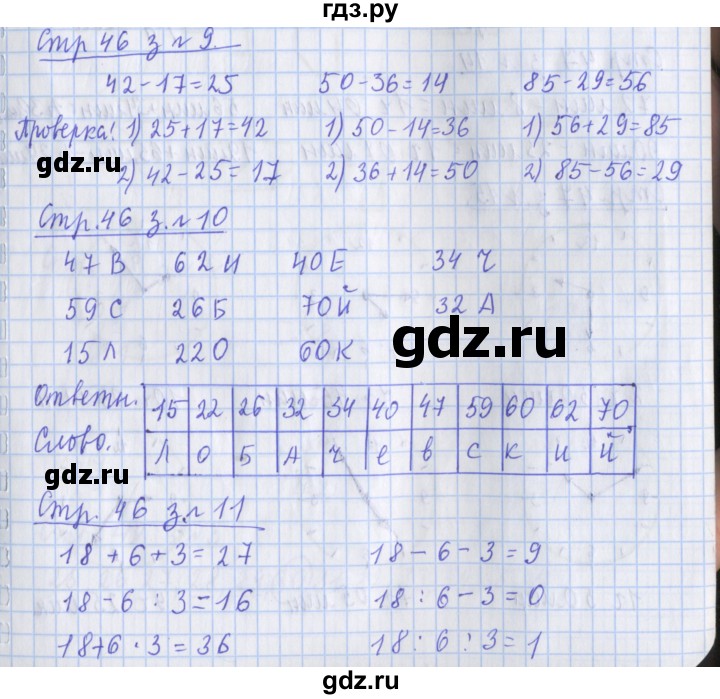 гдз.ру
Стр 46 з № 9.
42-17=25 50-36=14 85-29=56
Проверка! 1) 25+17=42 1) 50-14=36 1) 56+29=85
gdz.ru
2) 42-25=17 2) 36+14=50 2) 85-56=29
Стр. 46 з. № 10
47 В 62 И 40 Е 34 Ч
59 С 26 Б 70 Й 32 А
gdz.ru
15 Л 22 О 60 К
Ответы. 15 22 26 32 34 40 47 59 60 62 70
Слово. Л О Б А Ч е в с к и й
gdz.ru
Стр. 46 з. № 11
18 + 6 + 3 = 27 18 - 6 - 3 = 9
18 - 6 : 3 = 16 18 : 6 - 3 = 0
18 + 6 · 3 = 36 18 : 6 : 3 = 1
gdz.ru gdz.ru